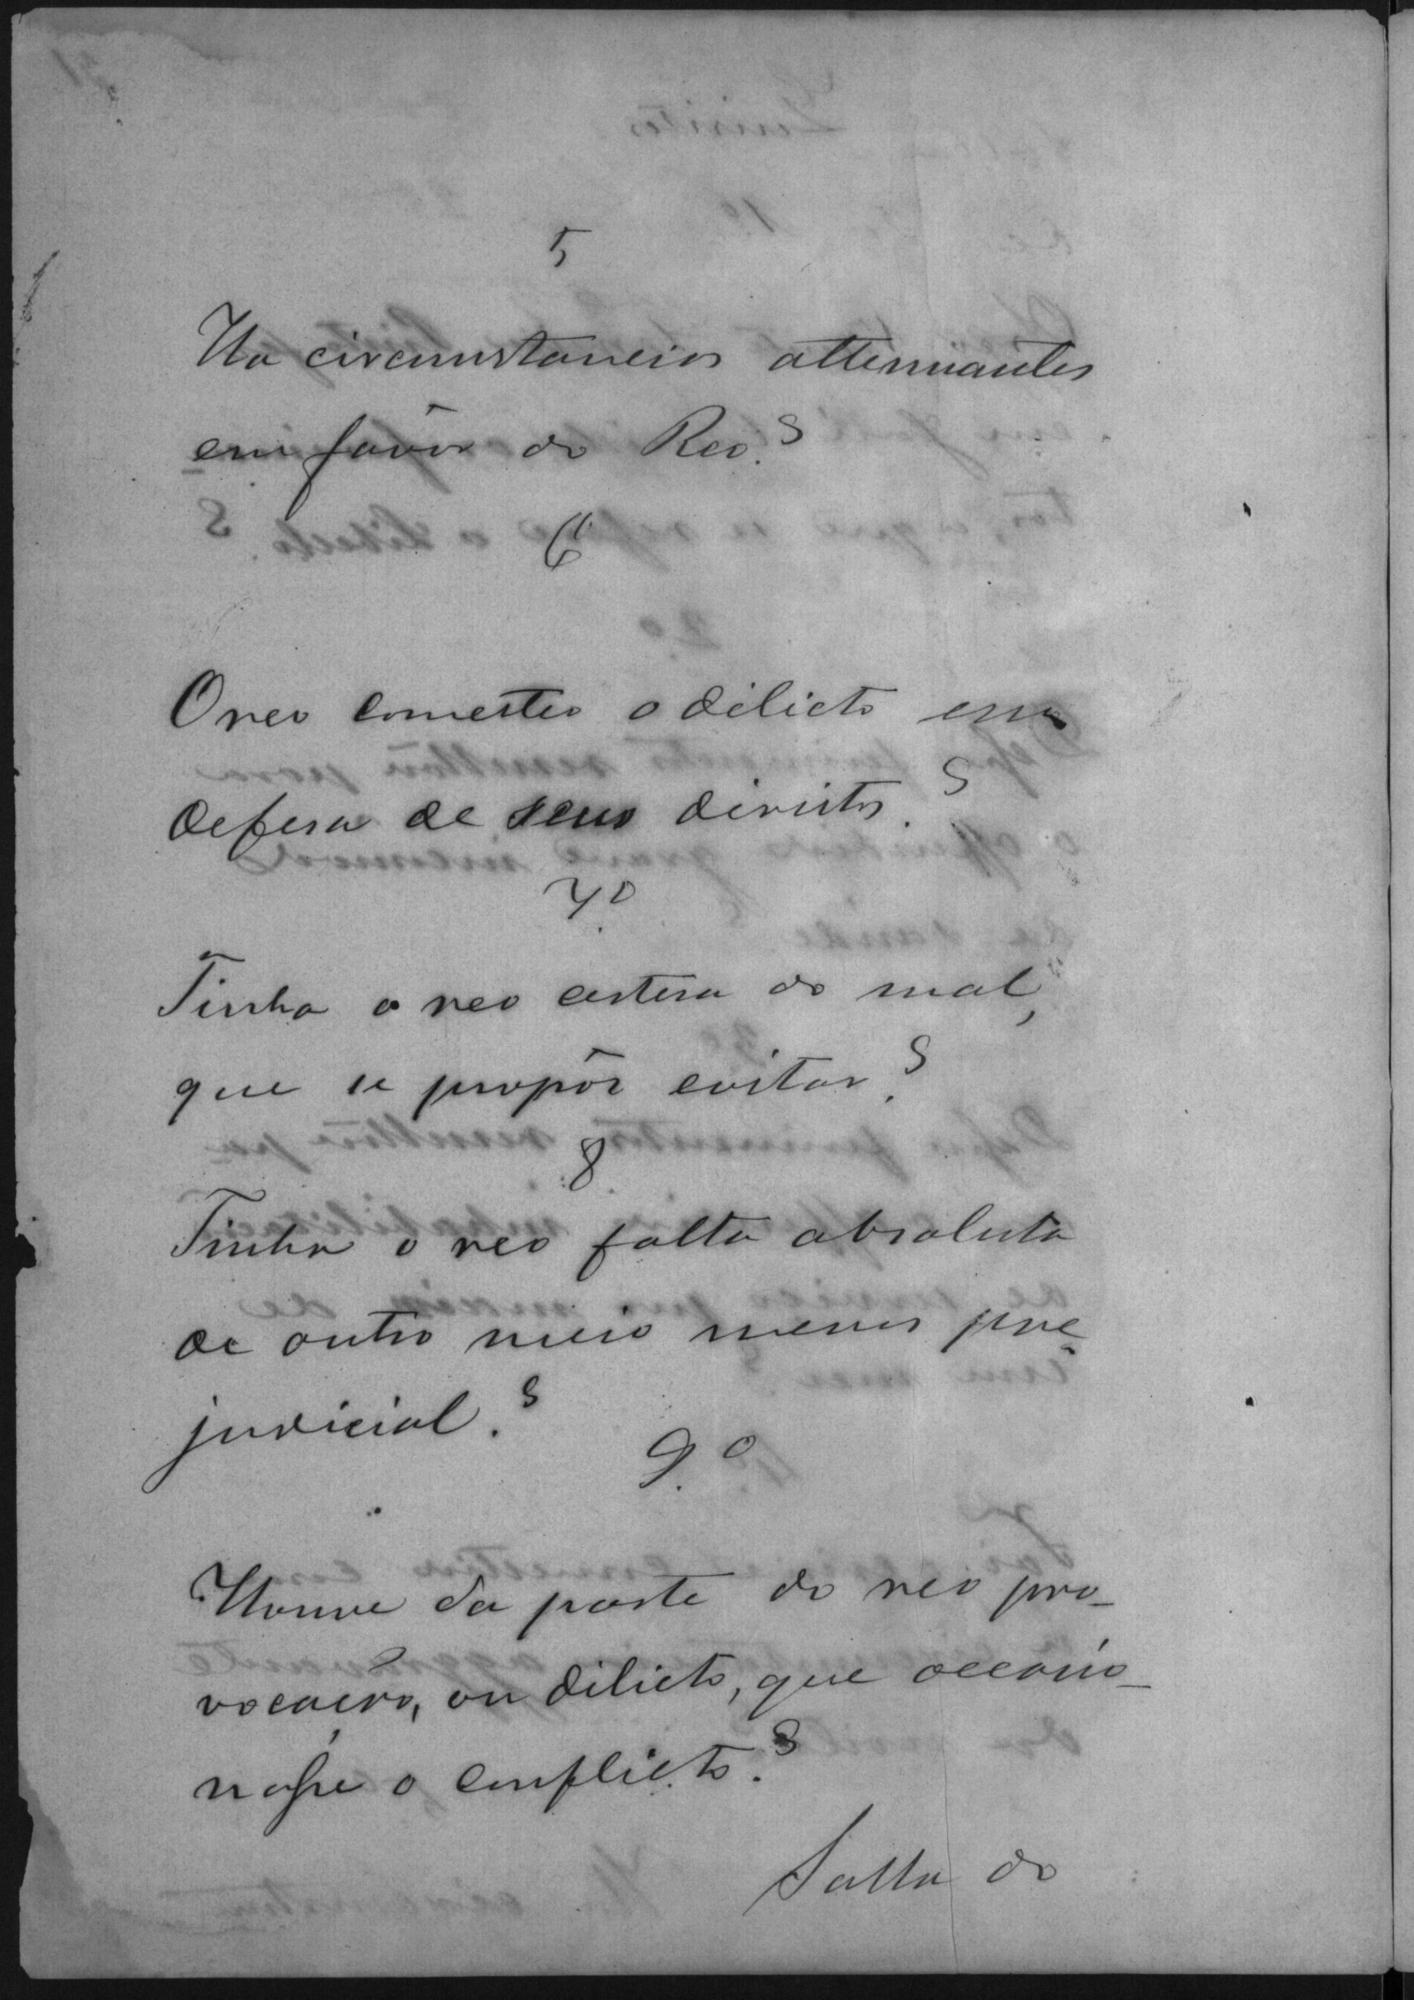 5
Ha circumstancias attenuantes
em favôr do Reo.?
6
O reo cometteo o dilicto em
defesa de seus direitos.?
7.º
Tinha o reo certesa do mal,
que se propôs evitar.?
8
Tinha o reo falta absoluta
de outro meio menos pre-
judicial.?
9.º
Houve da parte do reo pro-
vocação, ou dilicto, que occasio-
nasse o conflicto.?
Salla do